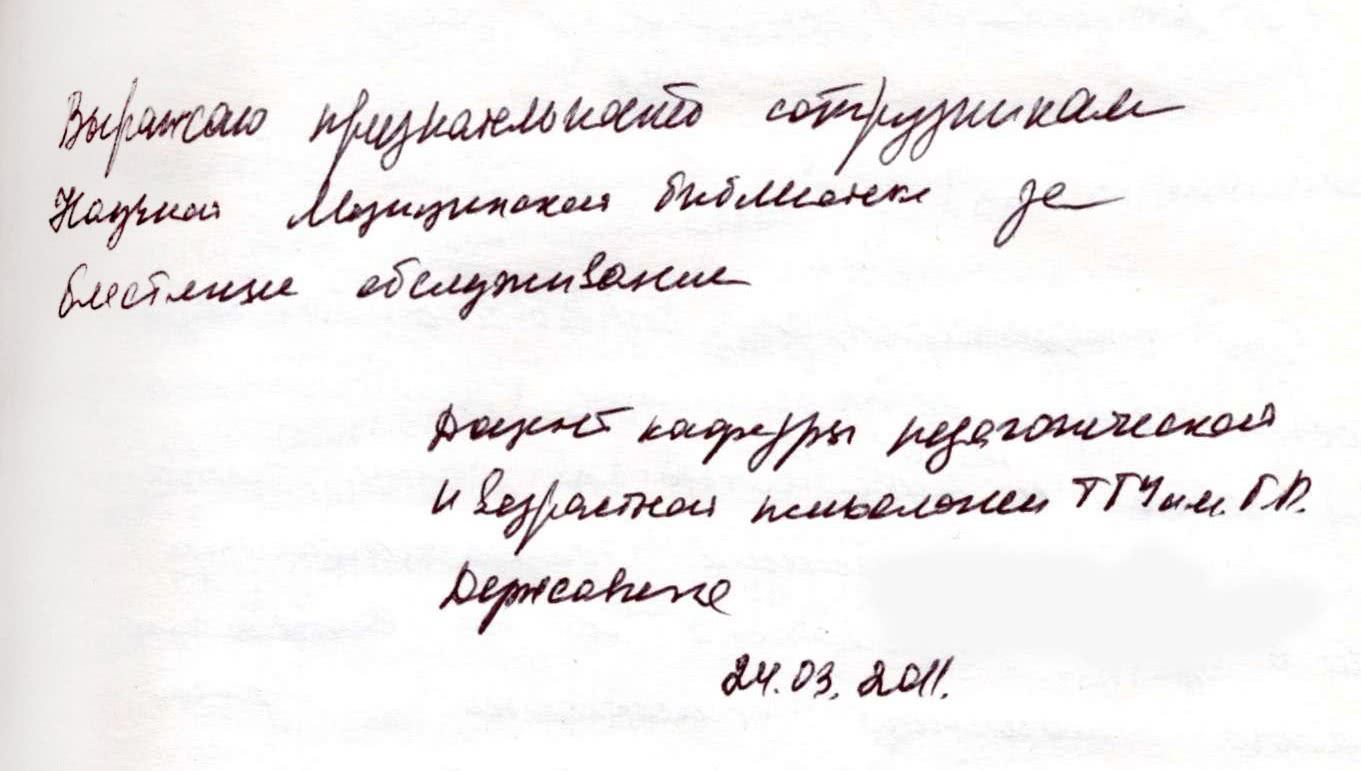 Выражаю признательность сотрудникам
Научной Медицинской библиотеки за
блестящее обслуживание
Доцент кафедры педагогической
и возрастной психологии ТГУ им. Г.Р.
Державина
24.03.2011.